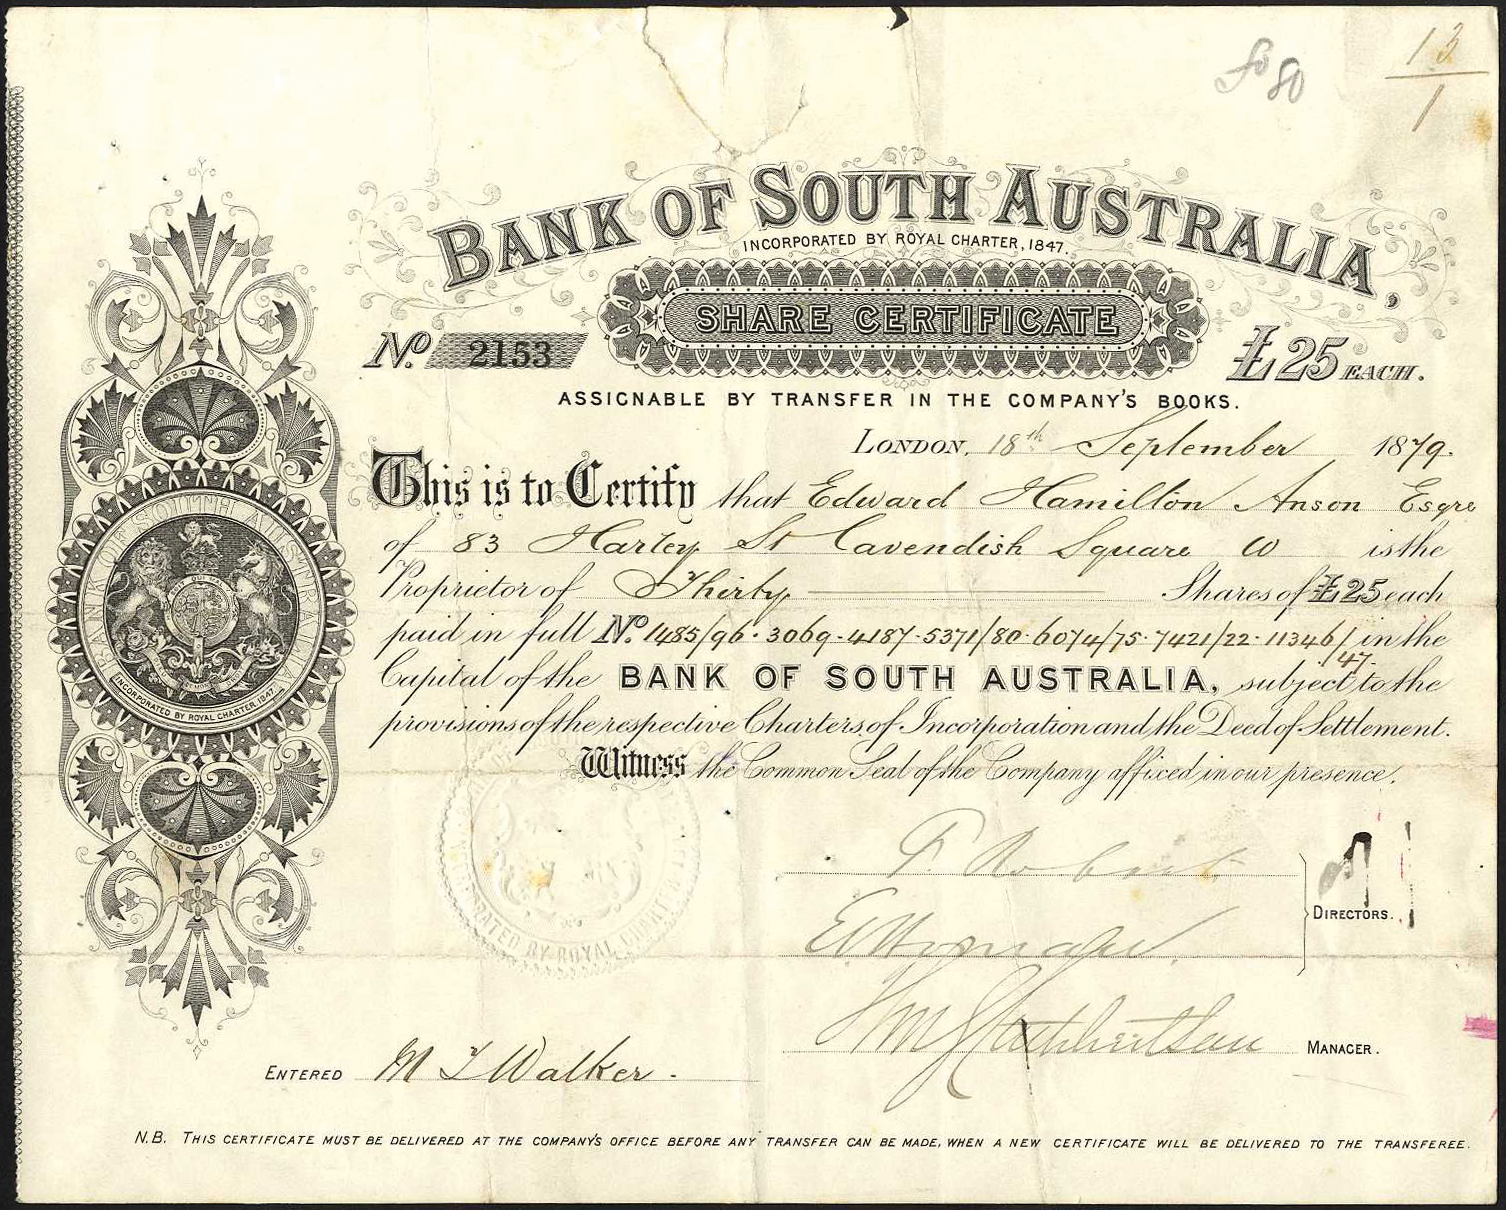 80
13
1
BANK OF SOUTH AUSTRALIA,
INCORPORATED BY ROYAL CHARTER, 1847.
SHARE CERTIFICATE
No. 2153
£25 EACH.
ASSIGNABLE BY TRANSFER IN THE COMPANY'S BOOKS.
LONDON, 18th September 1879.
This is to Certify that Edward Hamilton Anson Esqre
of 83 Harley St Cavendish Square W is the
Proprietor of Thirty Shares of £25 each
paid in full No. 1485/96 · 3069 · 4187 · 5371/80 · 6074/75 · 7421/22 · 11346/ in the
47.
Capital of the BANK OF SOUTH AUSTRALIA, subject to the
provisions of the respective Charters of Incorporation and the Deed of Settlement.
Witness the Common Seal of the Company affixed in our presence.
BANK OF SOUTH AUSTRALIA
QUI MAL
INCORPORATED BY ROYAL CHARTER 1847
INCORPORATED BY ROYAL CHARTER
DIRECTORS.
MANAGER.
ENTERED M T Walker.
N.B. THIS CERTIFICATE MUST BE DELIVERED AT THE COMPANY'S OFFICE BEFORE ANY TRANSFER CAN BE MADE, WHEN A NEW CERTIFICATE WILL BE DELIVERED TO THE TRANSFEREE.